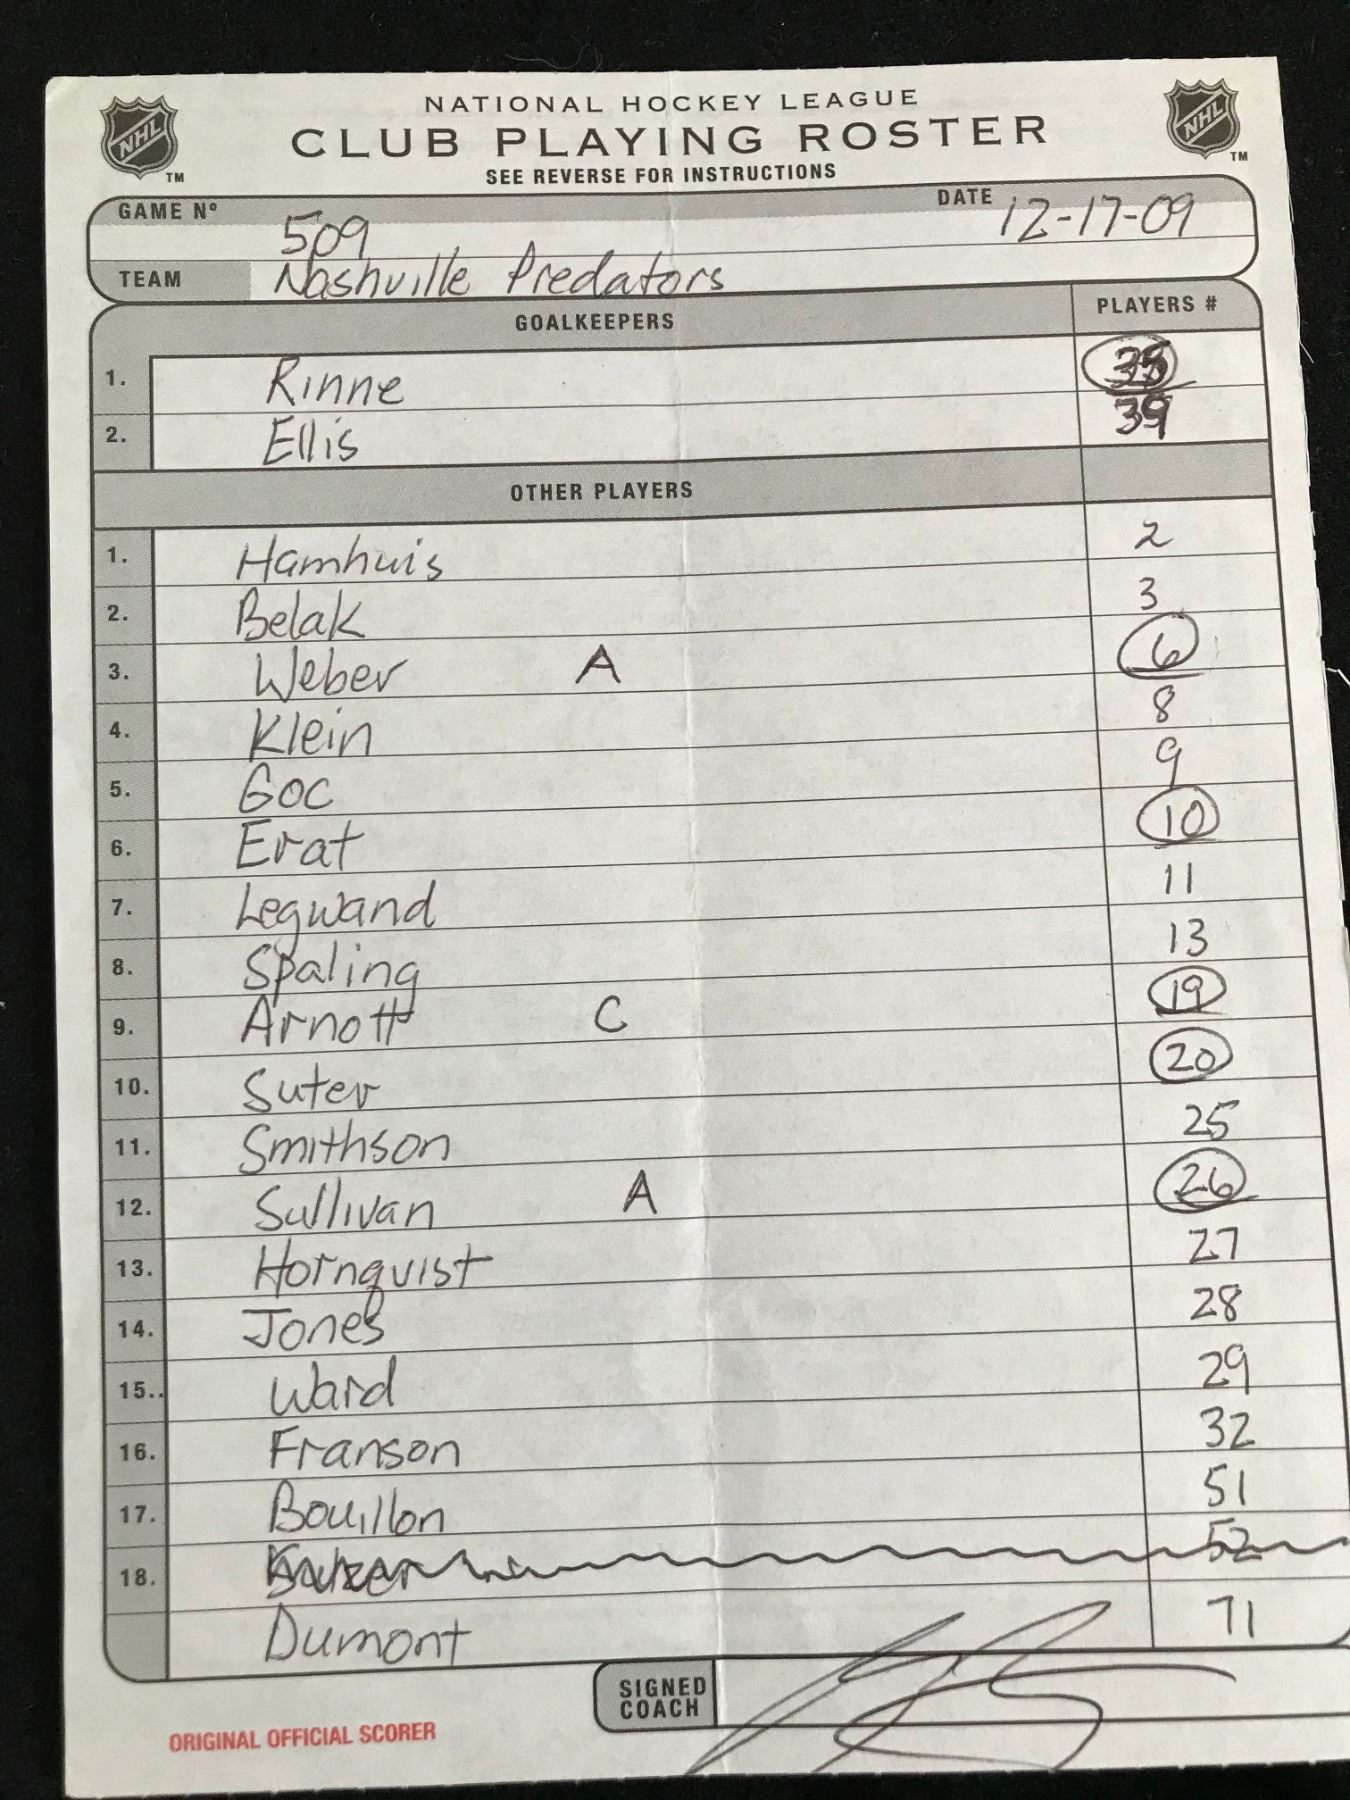 NATIONAL HOCKEY LEAGUE
NHL CLUB PLAYING ROSTER NHL
TM SEE REVERSE FOR INSTRUCTIONS TM
GAME Nº 509 DATE 12-17-09
TEAM Nashville Predators
GOALKEEPERS PLAYERS #
1. Rinne 35
2. Ellis 39
OTHER PLAYERS
1. Hamhuis 2
2. Belak 3
3. Weber A 6
4. Klein 8
5. Goc 9
6. Erat 10
7. Legwand 11
8. Spaling 13
9. Arnott C 19
10. Suter 20
11. Smithson 25
12. Sullivan A 26
13. Hornqvist 27
14. Jones 28
15.. Ward 29
16. Franson 32
17. Bouillon 51
18. 52
Dumont 71
SIGNED
COACH
ORIGINAL OFFICIAL SCORER